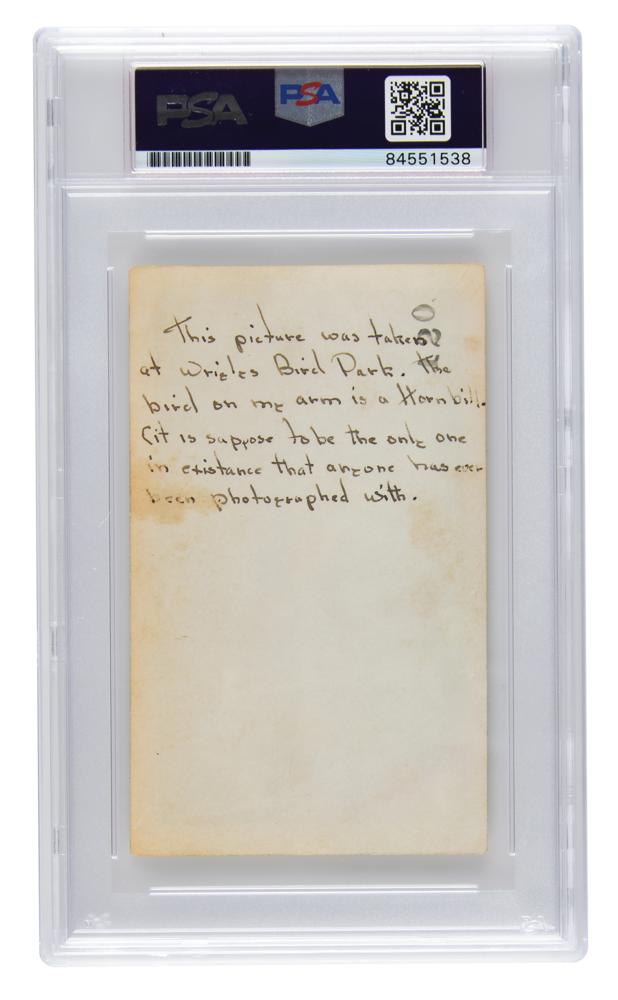 PSA
PSA
84551538
This picture was taken
at Wrigleys Bird Park. The
bird on my arm is a Hornbill.
(it is suppose to be the only one
in existance that anyone has ever
been photographed with.